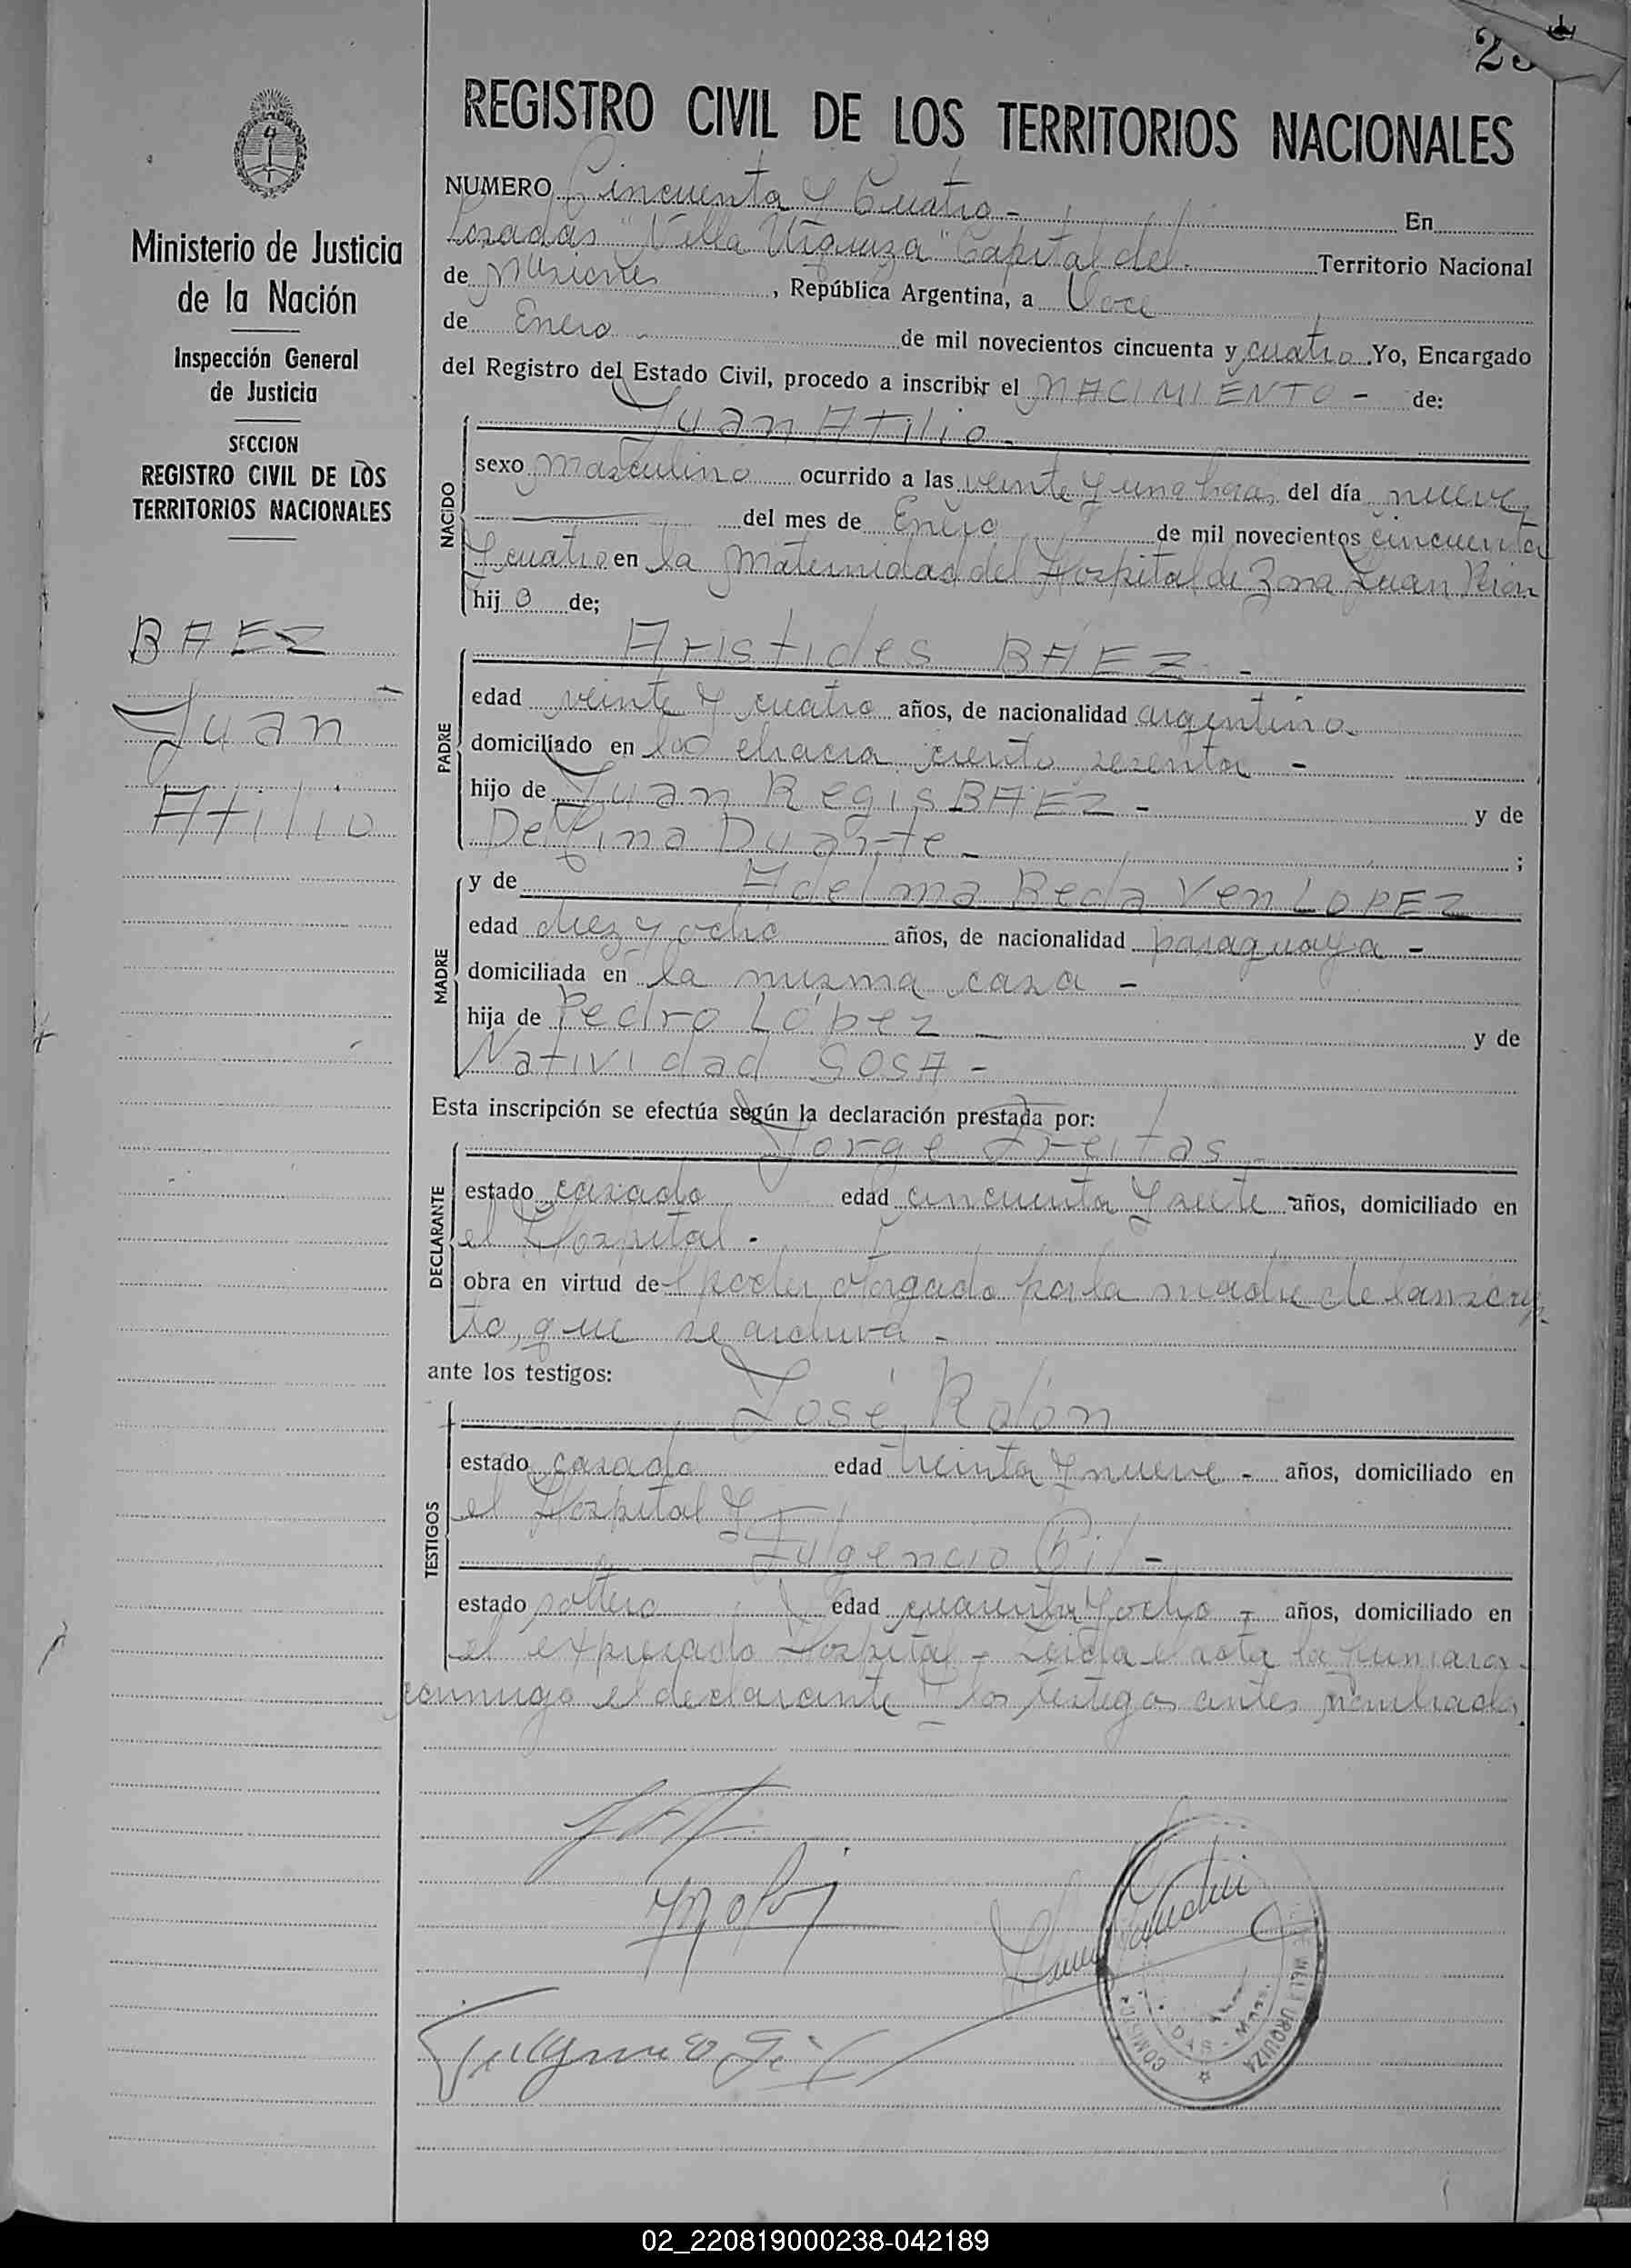 REGISTRO CIVIL DE LOS TERRITORIOS NACIONALES
Ministerio de Justicia
de la Nación
Inspección General
de Justicia
SECCION
REGISTRO CIVIL DE LOS
TERRITORIOS NACIONALES
BAEZ
Juan
Atilio
NUMERO Cincuenta y Cuatro - En
Posadas "Villa Urquiza" Capital del Territorio Nacional
de Misiones, República Argentina, a Doce
de Enero - de mil novecientos cincuenta y cuatro. Yo, Encargado
del Registro del Estado Civil, procedo a inscribir el NACIMIENTO - de:
NACIDO
Juan Atilio -
sexo masculino ocurrido a las veinte y una horas del día nueve
del mes de Enero de mil novecientos cincuenta
y cuatro en la Maternidad del Hospital de Zona Juan Perón
hijo de;
PADRE
Aristides BÁEZ -
edad veinte y cuatro años, de nacionalidad argentino
domiciliado en la chacra ciento sesenta -
hijo de Juan Regis BAEZ - y de
Delfina Duarte - ;
MADRE
y de Adelma Reda Ven LOPEZ
edad diez y ocho años, de nacionalidad paraguaya -
domiciliada en la misma casa -
hija de Pedro López - y de
Natividad SOSA -
Esta inscripción se efectúa según la declaración prestada por:
DECLARANTE
Jorge Freitas
estado casado edad cincuenta y siete años, domiciliado en
el Hospital -
obra en virtud del poder otorgado por la madre de la inscrip
to, que se archiva -
ante los testigos:
TESTIGOS
José Rolón
estado casado edad treinta y nueve - años, domiciliado en
el Hospital y
Fulgencio Gil -
estado soltero edad cuarenta y ocho - años, domiciliado en
el expresado Hospital - Leida el acta la firmaron
conmigo el declarante y los testigos antes nombrados.
Fulgencio Gil
VILLA URQUIZA
02_220819000238-042189